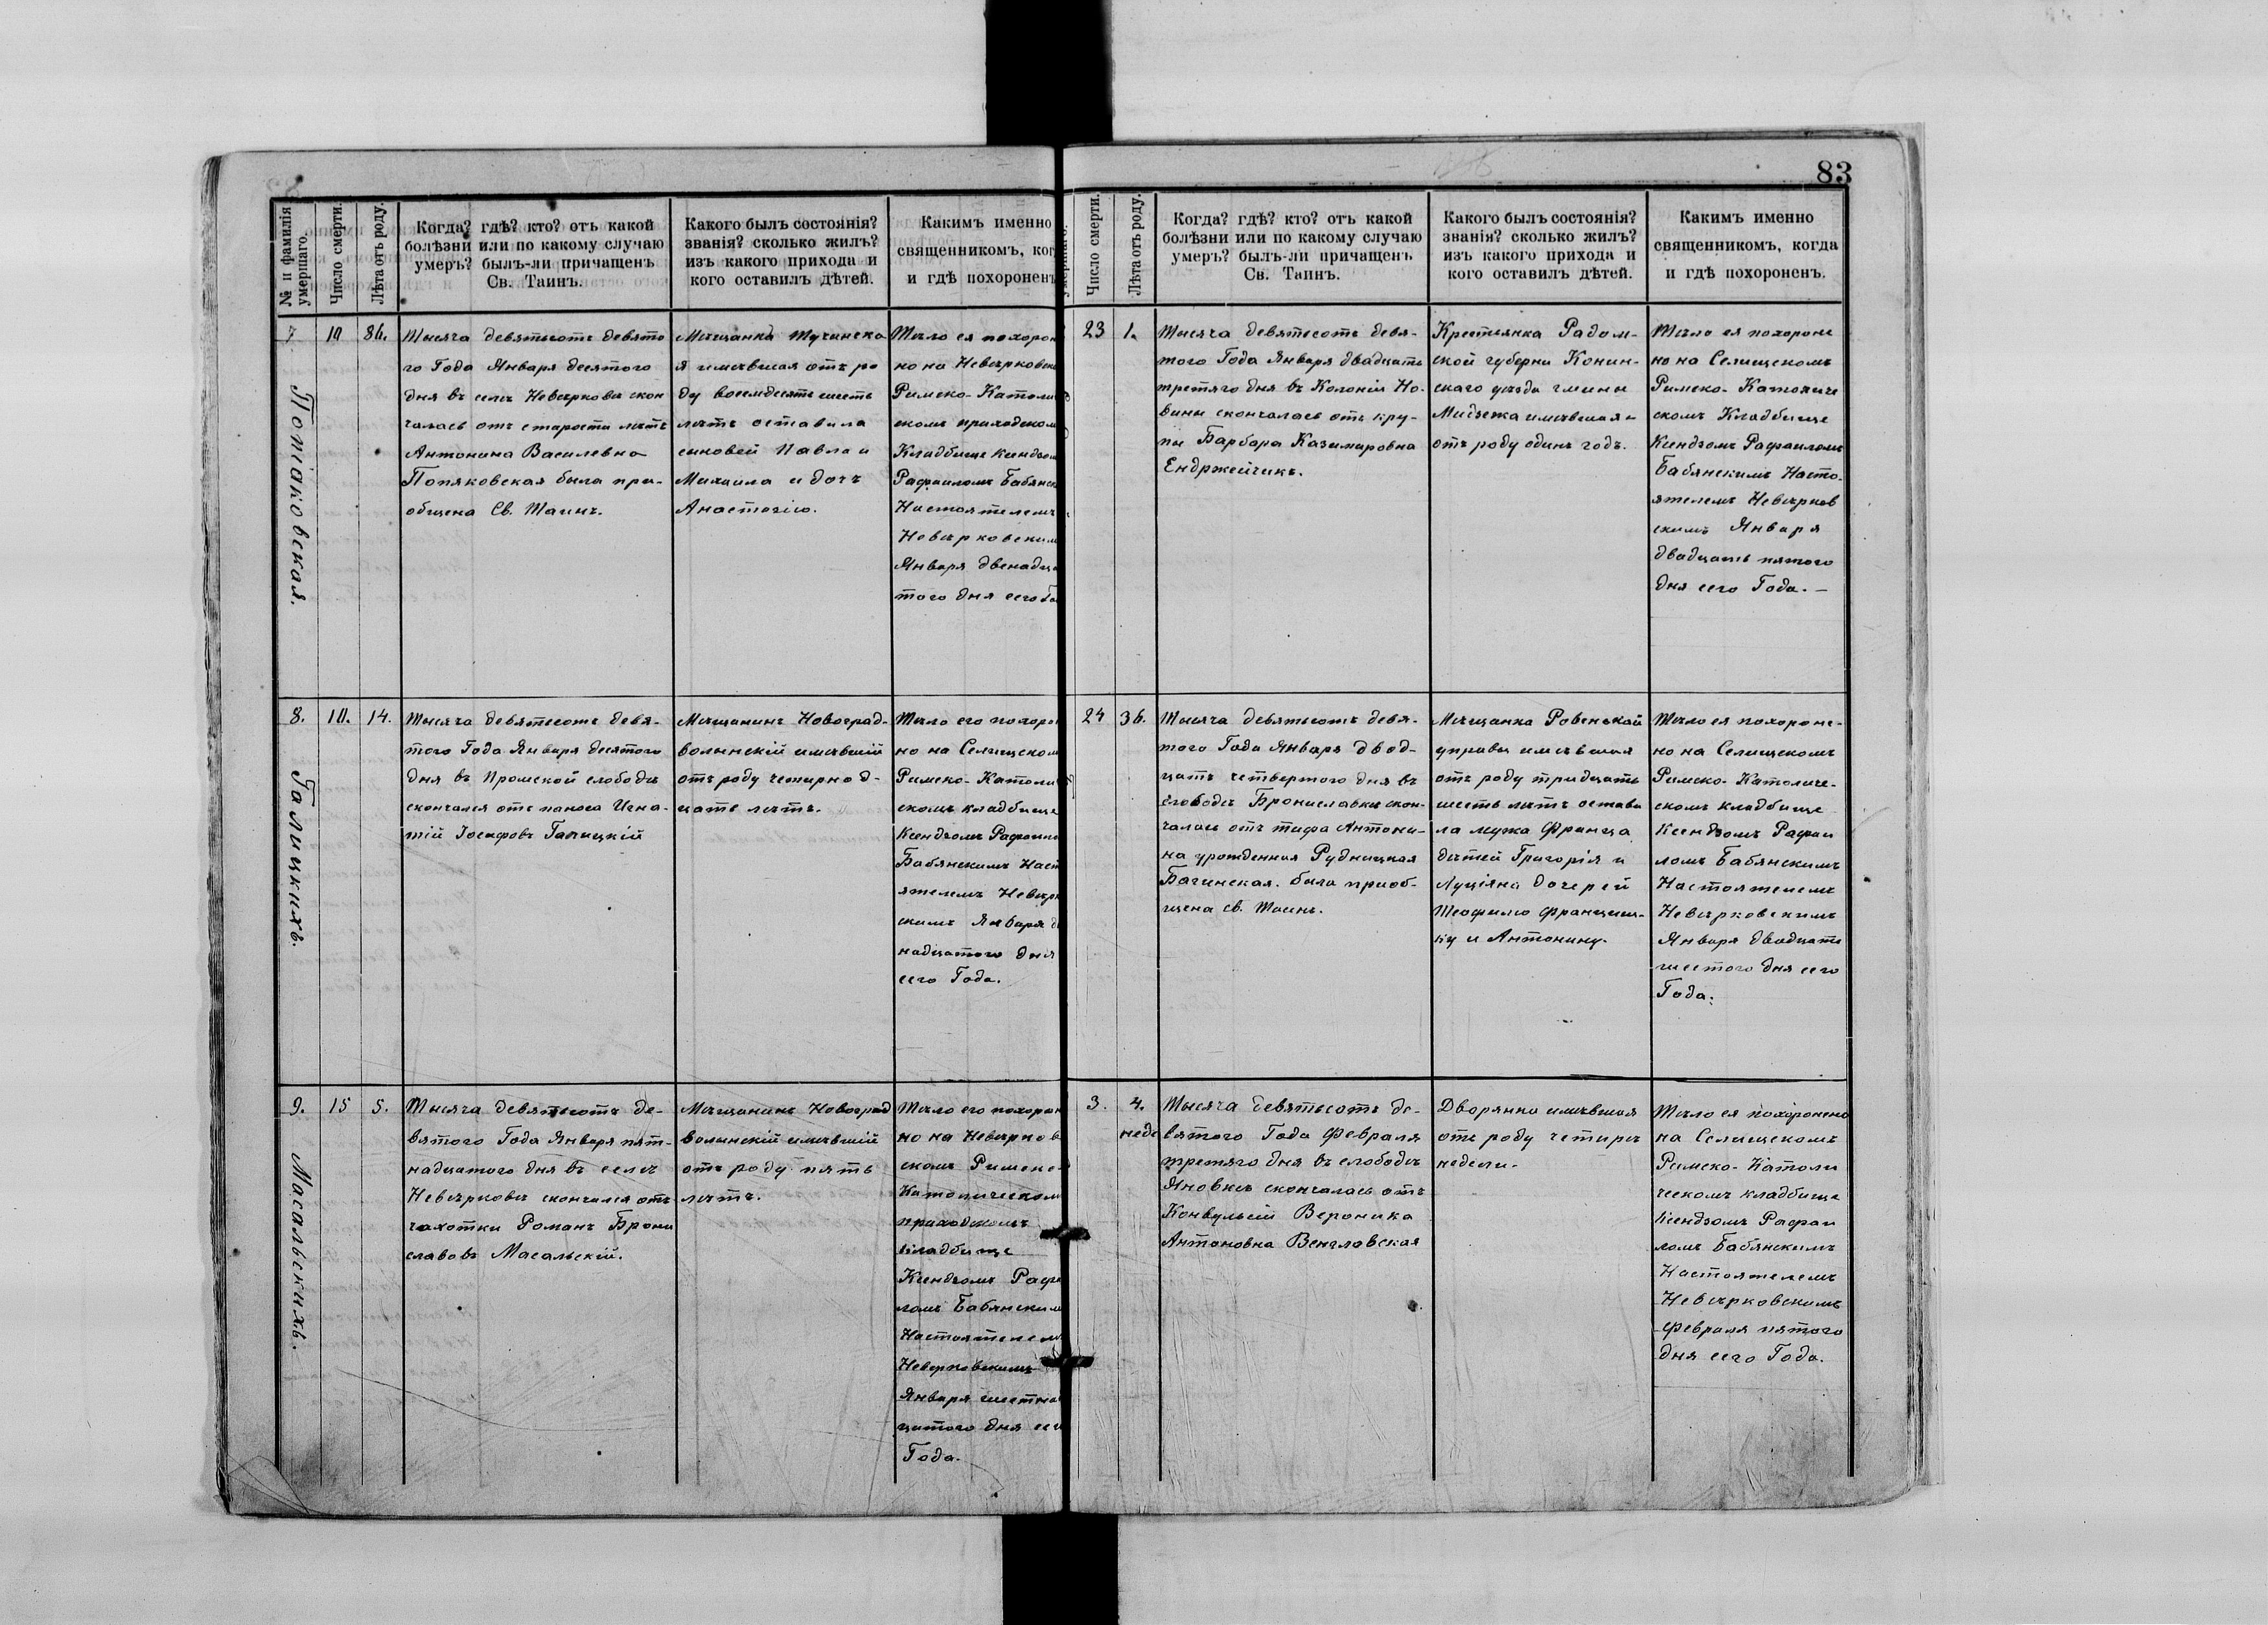 83
№ и фамилія умершаго.
Число смерти.
Лѣта отъ роду.
Когда? гдѣ? кто? отъ какой
болѣзни или по какому случаю
умеръ? былъ-ли причащенъ
Св. Таинъ.
Какого былъ состоянія?
званія? сколько жилъ?
изъ какого прихода и
кого оставилъ дѣтей.
Какимъ именно
священникомъ, ког
и гдѣ похороненъ
7
Попіаковская.
10
86.
Тысяча девятьсотъ девято
го Года Января десятого
дня въ селѣ Невѣрковѣ скон
чалась отъ старости лѣтъ
Антонина Василевна
Попяковская была при-
общена Св. Таинъ.
Мѣщанка Тучинска
я имѣвшая отъ ро
ду восемдесятъ шесть
лѣтъ оставила
сыновей Павла и
Михаила и дочъ
Анастозію.
Тѣло ея похорон
но на Невѣрковск
Римско-Католи
скомъ приходском
Кладбище Ксендзом
Рафаиломъ Бабянск
Настоятелемъ
Невѣрковским
Января двенадца
того дня сего Го
8.
Галицкихъ.
10.
14.
Тысяча девятьсотъ девя-
того Года Января десятого
дня въ Промской слободѣ
скончался отъ поноса Игна-
тій Іосифовъ Галицкій
Мѣщанинъ Новоград-
волынскій имѣвшій
отъ роду четырнад-
цать лѣтъ.
Тѣло его похоро
но на Селищском
Римско-Католи
скомъ кладбище
Ксендзомъ Рафаил
Бабянскимъ Наст
ятелемъ Невѣрк
скимъ Января д
надцатого дня
сего Года.
9.
Масальскихъ.
15
5.
Тысяча девятьсотъ де-
вятого Года Января пят-
надцатого дня въ селѣ
Невѣрковѣ скончался отъ
чахотки Романъ Брони
славовъ Масальскій.
Мѣщанинъ Новоград
волынскій имѣвшій
отъ роду пять
лѣтъ.
Тѣло его похорон
но на Невѣрков
скомъ Римско-
Католическом
приходскомъ
кладбище
Ксендзомъ Рафа
ломъ Бабянским
Настоятелем
Неверковскимъ
Января шестна
цатого дня сег
Года.
умершаго.
Число смерти.
Лѣта отъ роду.
Когда? гдѣ? кто? отъ какой
болѣзни или по какому случаю
умеръ? былъ-ли причащенъ
Св. Таинъ.
Какого былъ состоянія?
званія? сколько жилъ?
изъ какого прихода и
кого оставилъ дѣтей.
Какимъ именно
священникомъ, когда
и гдѣ похороненъ.
23
1.
Тысяча девятьсотъ девя-
того Года Января двадцать
третяго дня въ Колоніи Но-
вины скончалась отъ кру-
пы Барбара Казимировна
Ендржейчикъ.
Крестьянка Радом-
ской губерни Конин-
скаго уѣзда гмины
Мидзежа имѣвшая
отъ роду одинъ годъ.
Тѣло ея похороне
но на Селищскомъ
Римско-Католиче
скомъ Кладбище
Ксендзомъ Рафаиломъ
Бабянскимъ Насто-
ятелемъ Невѣрков
скимъ Января
двадцать пятого
дня сего Года. —
24
36.
Тысяча девятьсотъ девя-
того Года Января двад-
цать четвертого дня въ
слободѣ Брониславкѣ скон-
чалась отъ тифа Антони-
на урожденная Рудницкая
Багинская. была приоб-
щена св. Таинъ.
Мѣщанка Ровенской
управы имѣвшая
отъ роду тридцать
шесть лѣтъ остави
ла мужа Франца
дѣтей Григорія и
Луціяна дочерей
Теофилю Франциш-
ку и Антонину.
Тѣло ея похороне-
но на Селищскомъ
Римско-Католиче-
скомъ кладбище
Ксендзомъ Рафаи
ломъ Бабянскимъ
Настоятелемъ
Невѣрковскимъ
Января двадцать
шестого дня сего
Года.
3.
4.
неде
Тысяча девятьсотъ де-
вятого Года Февраля
третяго дня въ слободѣ
Яновкѣ скончалась отъ
Конвульсій Вероника
Антоновна Венглавская
Дворянка имѣвшая
отъ роду четыри
недели.
Тѣло ея похоронено
на Селищскомъ
Римско-Католи
ческомъ кладбище
Ксендзомъ Рафаи
ломъ Бабянскимъ
Настоятелемъ
Невѣрковскимъ
Февраля пятого
дня сего Года.